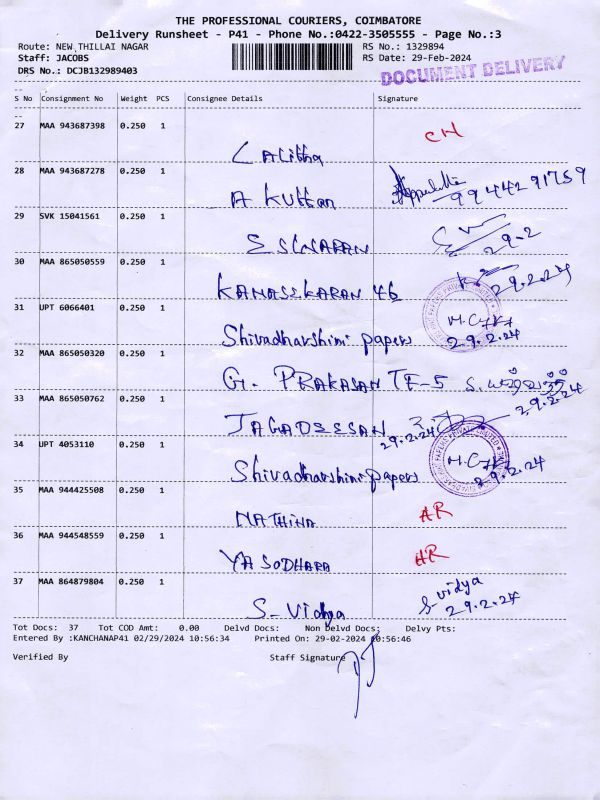 THE PROFESSIONAL COURIERS, COIMBATORE
Delivery Runsheet - P41 - Phone No.:0422-3505555 - Page No.:3
Route: NEW THILLAI NAGAR RS No.: 1329894
Staff: JACOBS RS Date: 29-Feb-2024
DRS No.: DCJB132989403 DOCUMENT DELIVERY
S No Consignment No Weight PCS Consignee Details Signature
27 MAA 943687398 0.250 1 Lalitha CH
28 MAA 943687278 0.250 1 A Kuttan 9944291759
29 SVK 15041561 0.250 1 ESWARAN 29-2
30 MAA 865050559 0.250 1 KANASEKARAN 46 29.2.24
31 UPT 6066401 0.250 1 Shivadharshini papers 29.2.24
32 MAA 865050320 0.250 1 G. PRAKASAN TF-5
33 MAA 865050762 0.250 1 JAGADEESAN 29.2.24 29.2.24
34 UPT 4053110 0.250 1 Shivadharshini papers 29.2.24
35 MAA 944425508 0.250 1 MATHINA AR
36 MAA 944548559 0.250 1 YASODHARA AR
37 MAA 864879804 0.250 1 S-Vidya S-vidya
29.2.24
Tot Docs: 37 Tot COD Amt: 0.00 Delvd Docs: Non Delvd Docs: Delvy Pts:
Entered By :KANCHANAP41 02/29/2024 10:56:34 Printed On: 29-02-2024 10:56:46
Verified By Staff Signature